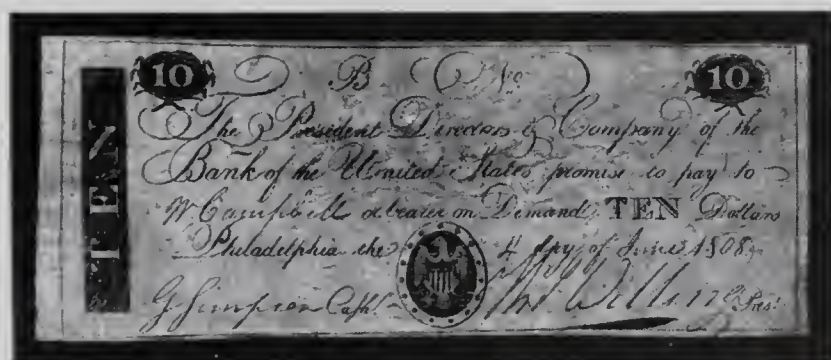 10 B No 10
TEN
The President Directors & Company of the
Bank of the United States promise to pay to
W Campbell or bearer on Demand TEN Dollars
Philadelphia the 4 day of June 1808
G Simpson Cash.r Pres.t